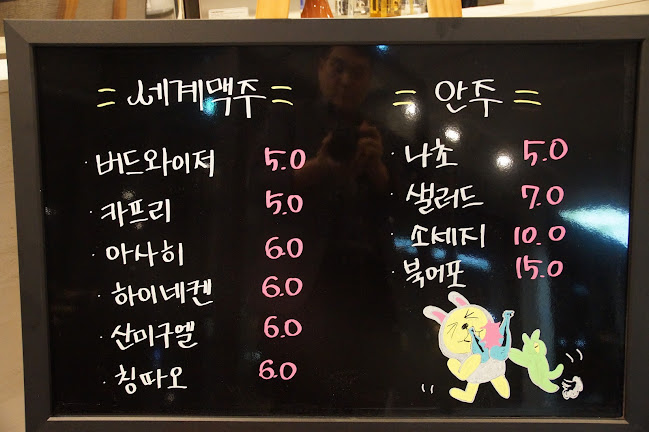 = 세계맥주 =
· 버드와이저 5.0
· 카프리 5.0
· 아사히 6.0
· 하이네켄 6.0
· 산미구엘 6.0
· 칭따오 6.0
= 안주 =
· 나초 5.0
· 샐러드 7.0
· 소세지 10.0
· 북어포 15.0